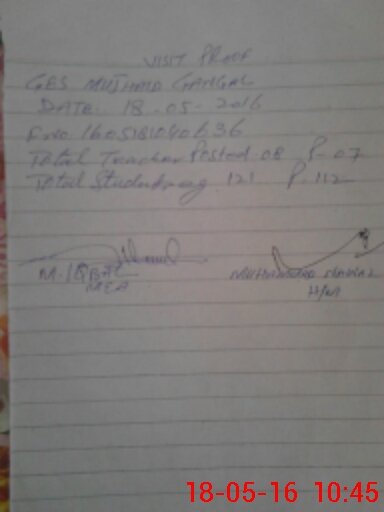 VISIT PROOF
GES MUJHAID GANGAL
DATE. 18-05-2016
F.NO. 160518104 0636
Total Teacher Posted 08 P-07
Total Student 121 P.112
M. IQBAL
MEA
H/M
18-05-16 10:45